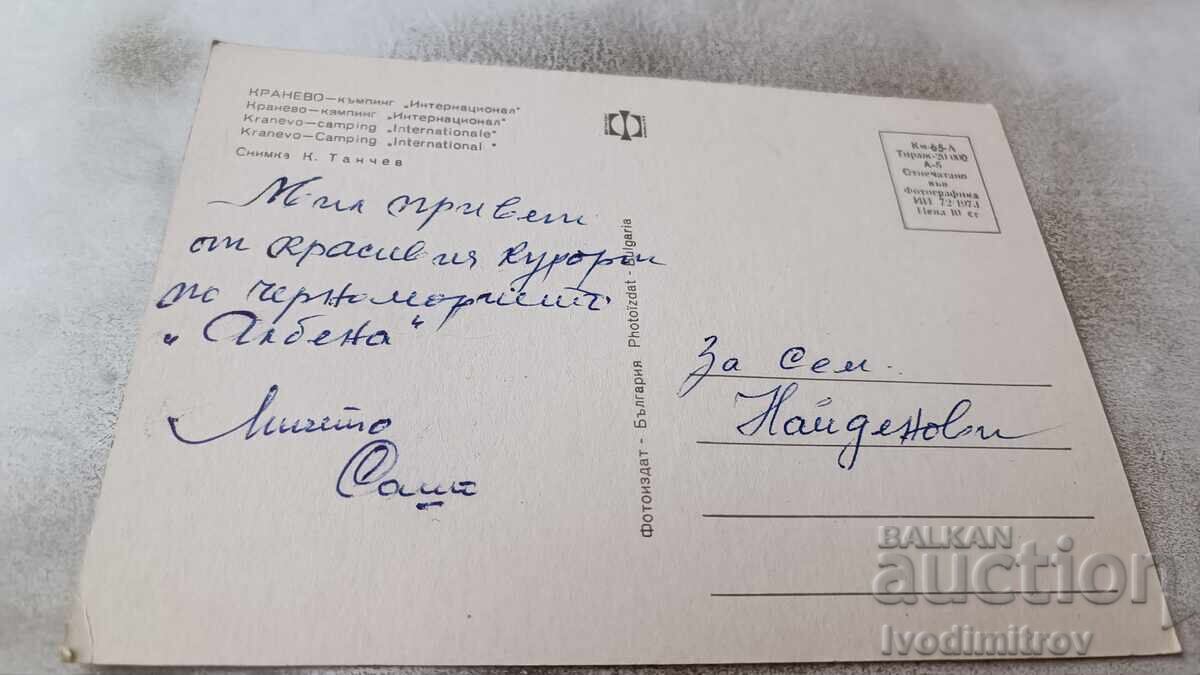 КРАНЕВО—къмпинг „Интернационал"
Кранево—кэмпинг „Интернационал"
Kranevo—camping „Internationale"
Kranevo—Camping „International"
Снимка К. Танчев
Мил привет
от красивия курорт
по черноморието
„Албена"
Мичето
Сашо
Фотоиздат - България Photoizdat - Bulgaria
Кн-65-А
Тираж-20 000
А-5
Отпечатано
във
Фотографика
ИП 72/1974
Цена 10 ст
За Сем.
Найденови
BALKAN
auction
Ivodimitrov